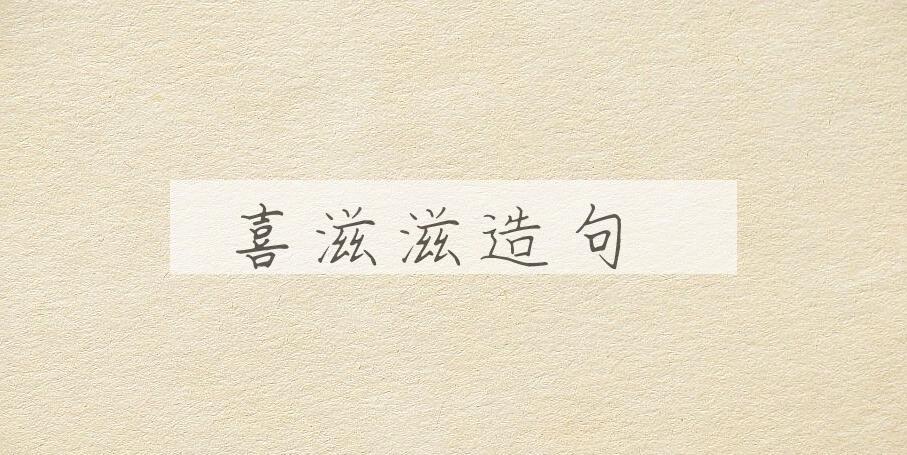 喜滋滋造句